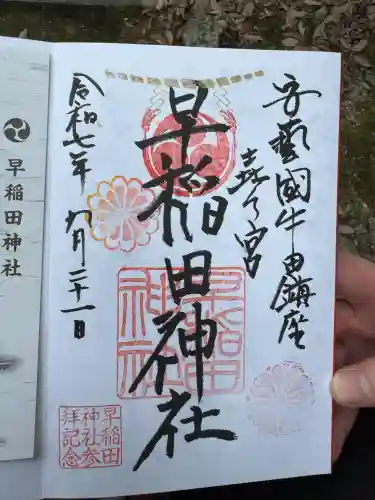 安藝國牛田鎮座
㐂く宮
早稲田神社
早稲田
神社
令和七年 九月二十一日
早稲田
神社参
拝記念
早稲田神社